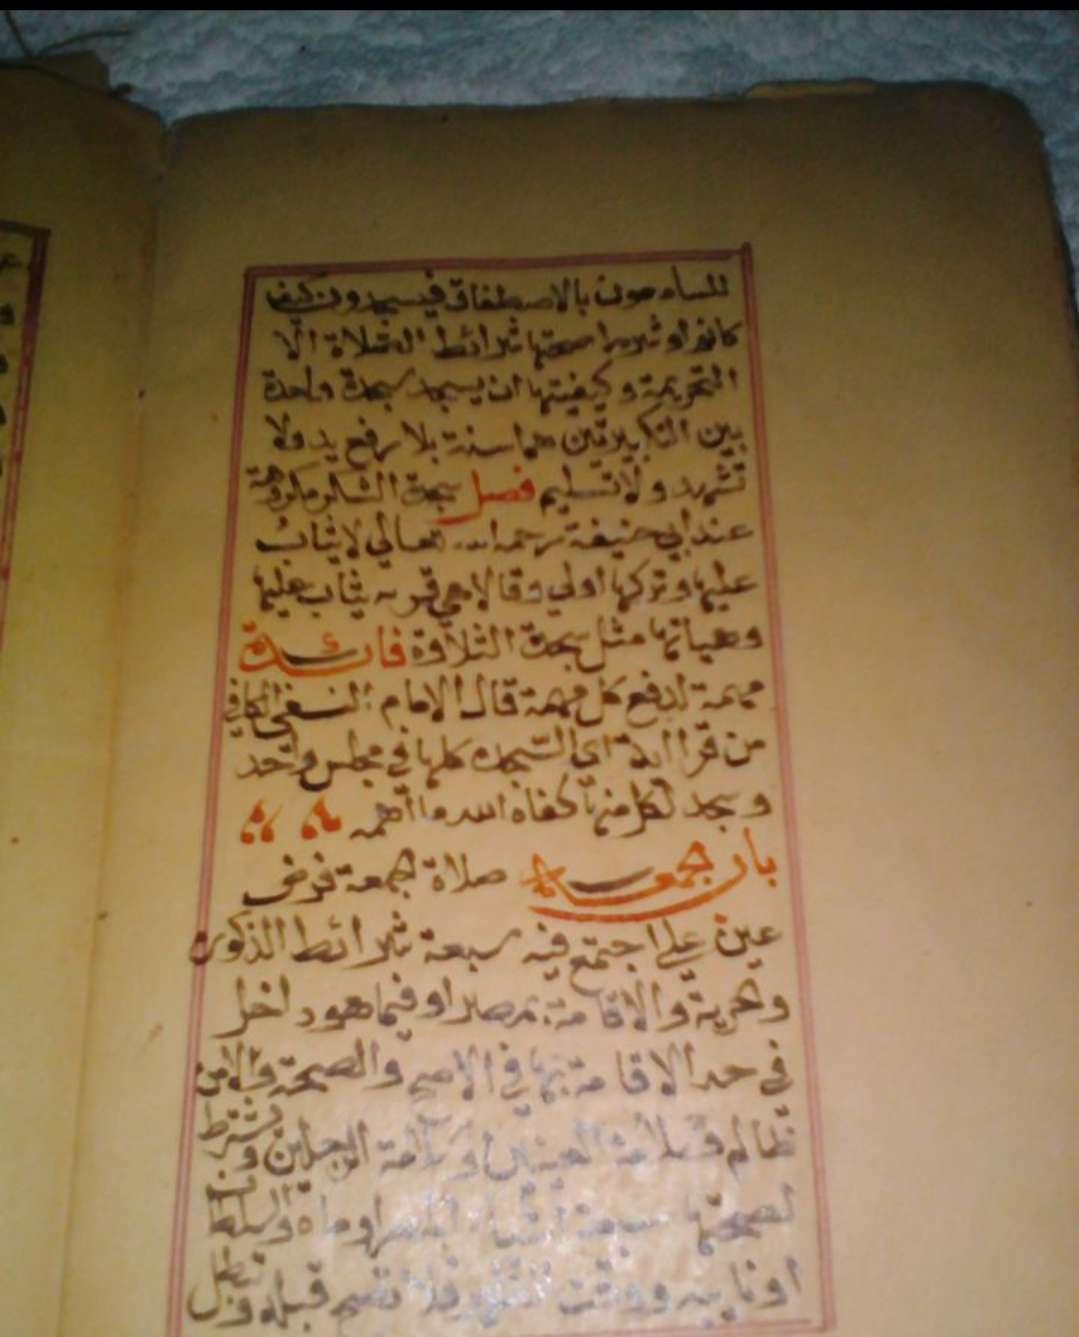 السامعون بالاصطفاف فيسجدون كيف
كانوا وشرط صحتها شرائط الصلاة الا
التحريمة وكيفيتها ان يسجد سجدة واحدة
بين التكبيرتين هما سنة بلا رفع يد ولا
تشهد ولا تسليم فصل سجدة الشكر مكروهة
عند ابي حنيفة رحمه الله تعالي لا يثاب
عليها وتركها اولي وقالا هي قربه يثاب عليها
وهياتها مثل سجدة التلاوة فائدة
مهمة لدفع كل مهمة قال الامام النسفي في الكافي
من قرا اية اي السجده كلها في مجلس واحد
وسجد لكل منها كفاه الله ما اهمه
باب جمعه صلاة جمعة فرض
عين علي اجتمع فيه سبعة شرائط الذكوره
والحرية والاقامة بمصر او فيما هو داخل
في حد الاقامة بها في الاصح والصحة والامن
ظالم وسلامة العينين وسلامة الرجلين ويشترط
لصحتها ستة اشياء المصر او فناه والسلطان
او نايبه ووقت الظهر فلا تصح قبله وتبطل